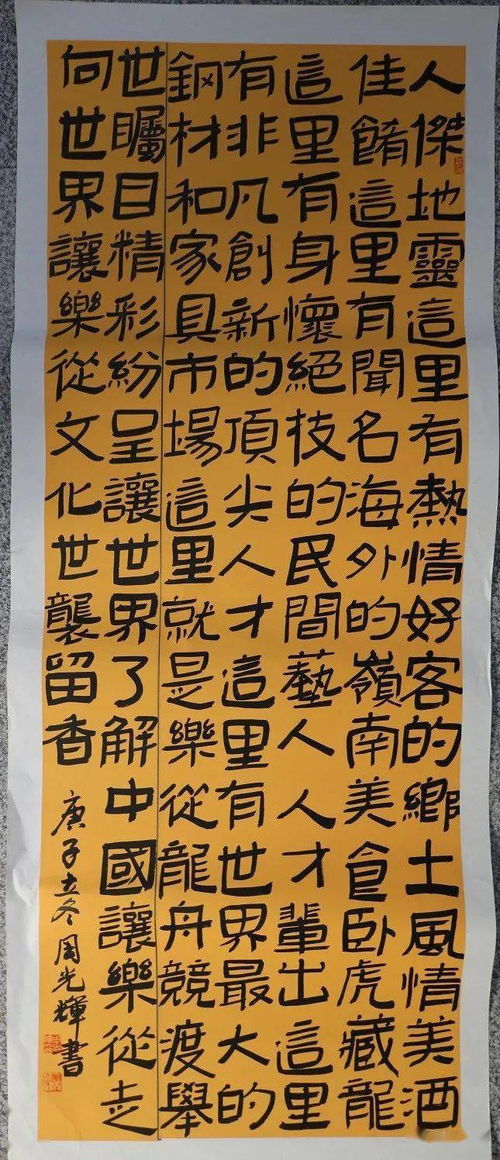 人傑地靈這里有熱情好客的鄉土風情美酒
佳餚這里有聞名海外的嶺南美食卧虎藏龍
這里有身懷絕技的民間藝人人才輩出這里
有非凡創新的頂尖人才這里有世界最大的
鋼材和家具市場這里就是樂從龍舟競渡舉
世矚目精彩紛呈讓世界了解中國讓樂從走
向世界讓樂從文化世襲留香
庚子立冬周光輝書